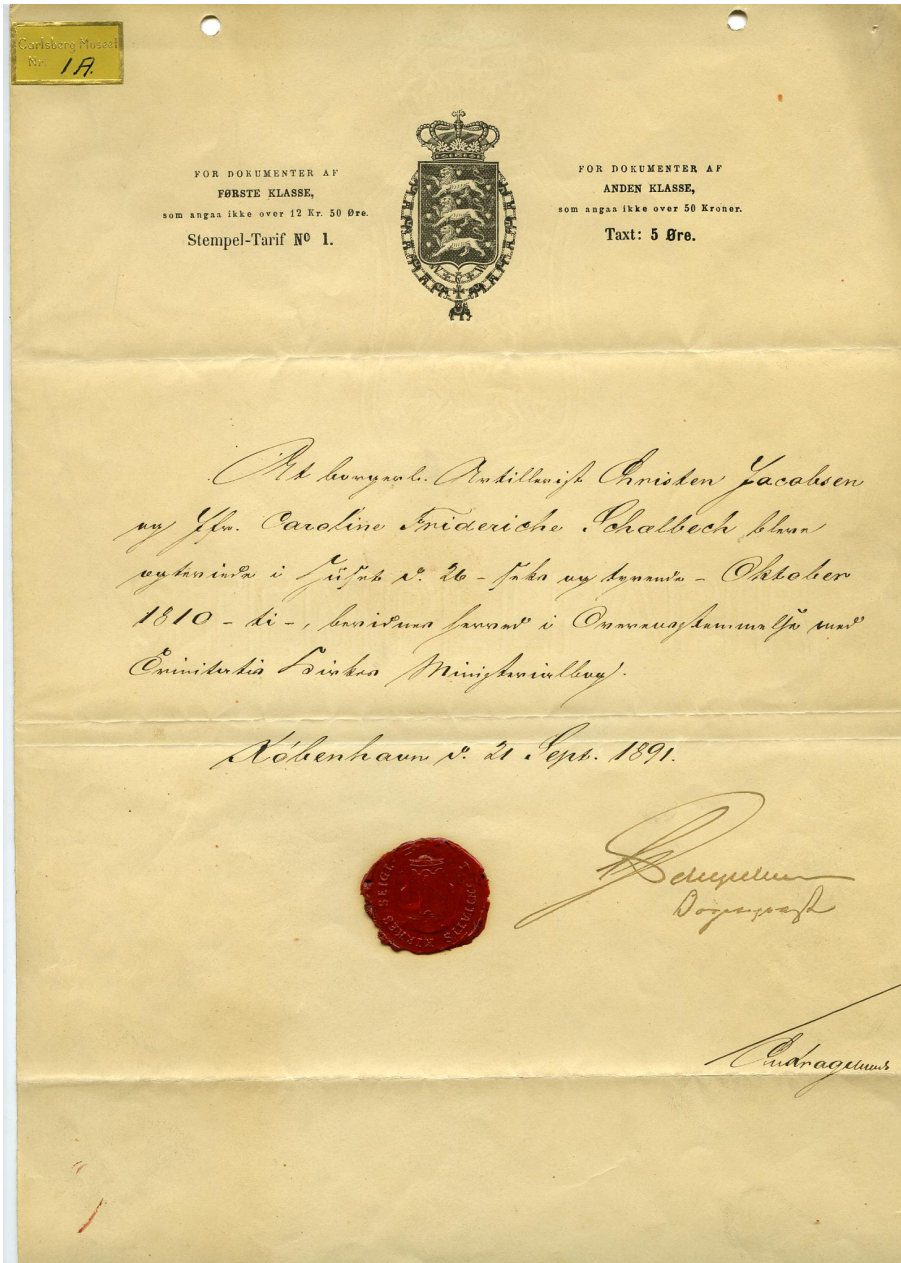 Carlsberg Museet
Nr. 1A.
FOR DOKUMENTER AF
FØRSTE KLASSE,
som angaa ikke over 12 Kr. 50 Øre.
Stempel-Tarif Nº 1.
FOR DOKUMENTER AF
ANDEN KLASSE,
som angaa ikke over 50 Kroner.
Taxt: 5 Øre.
At borgerl. Artillerist Christen Jacobsen
og Jfr. Caroline Frideriche Schelbech bleve
ægteviede i Huset d. 26 - seks og tyvende - Oktober
1810 - ti -, bevidnes herved i Overensstemmelse med
Trinitatis Kirkes Ministerialbog.
København d. 21 Sept. 1891.
TRINITATIS KIRKES SEIGL